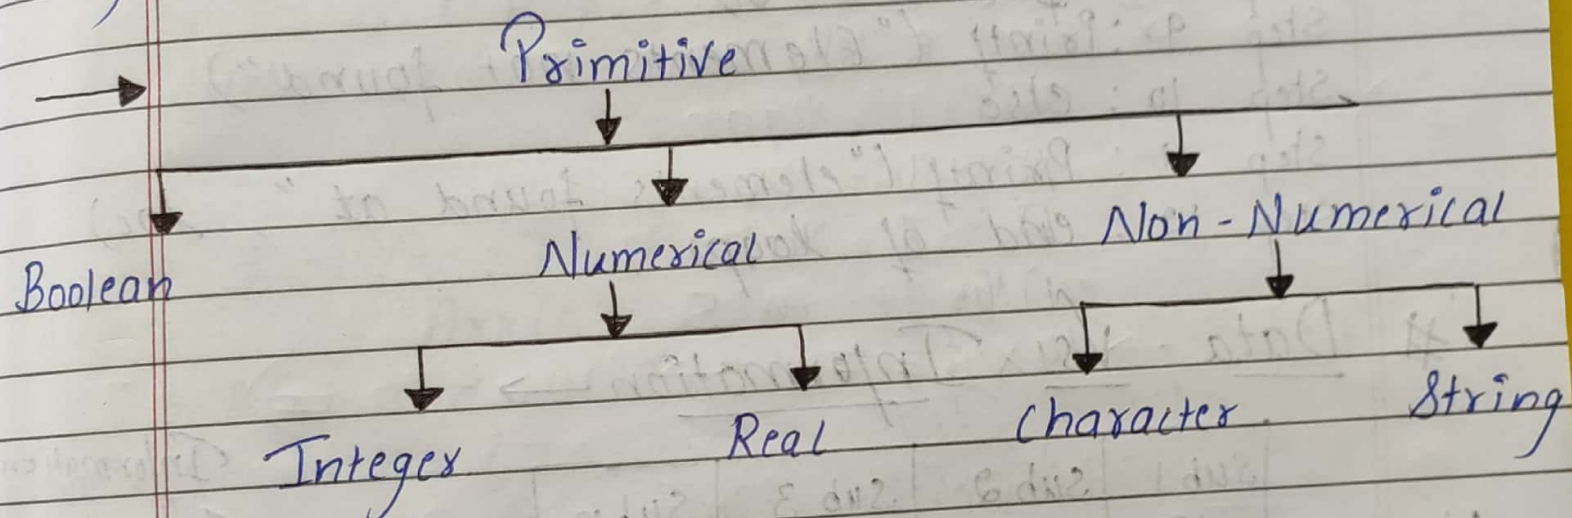 Primitive
Boolean Numerical Non-Numerical
Integer Real Character String